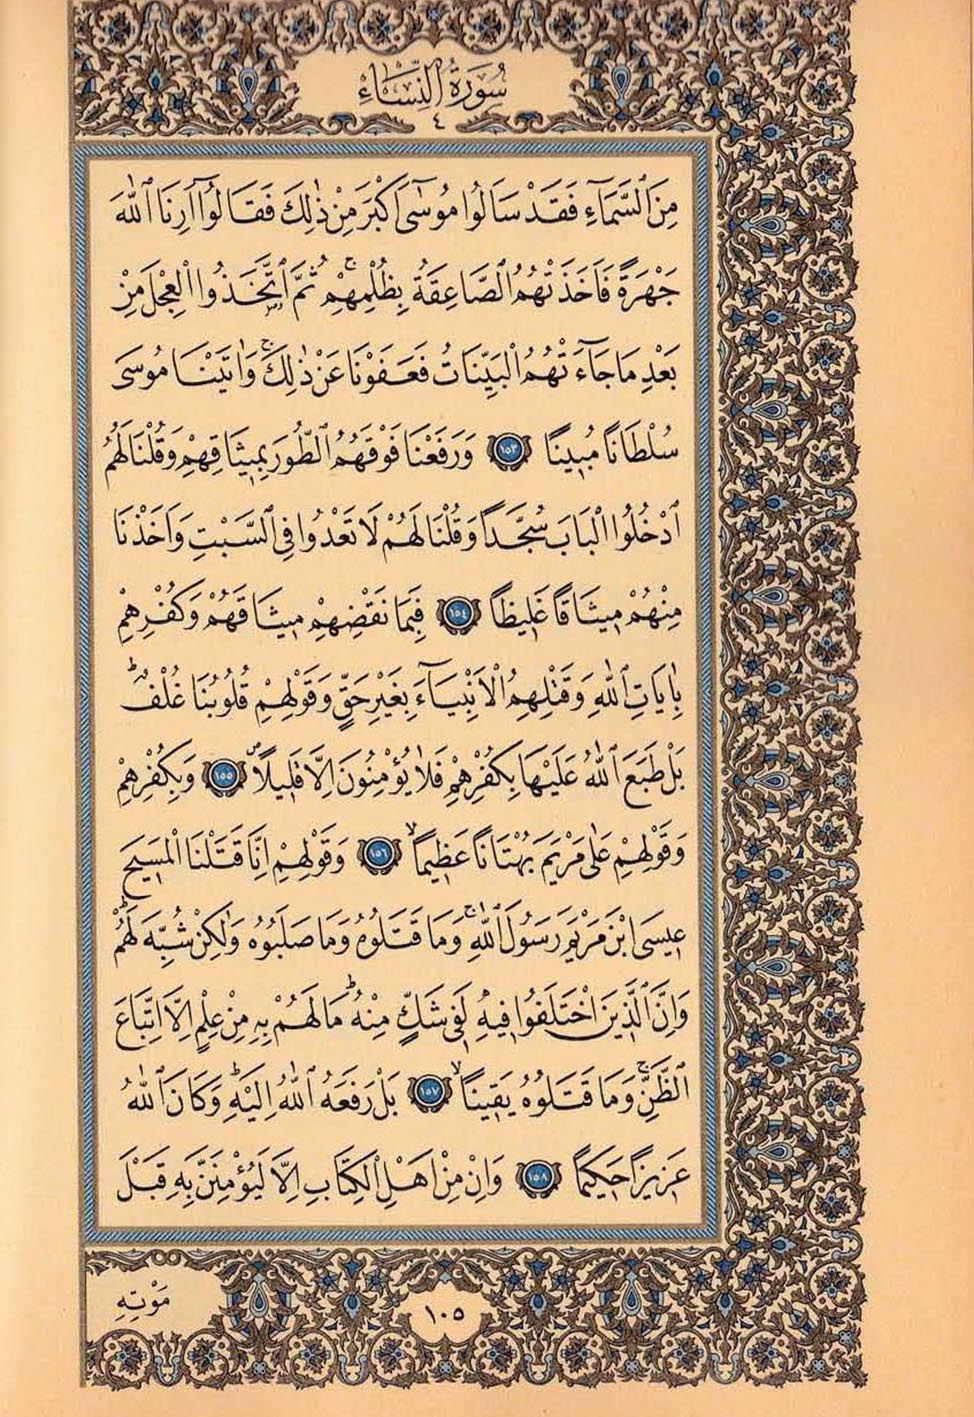 سُورَةُ النِّسَاءِ
٤
مِنَ ٱلسَّمَآءِ فَقَدْ سَاَلُوا مُوسٰٓى اَكْبَرَ مِنْ ذٰلِكَ فَقَالُٓوا اَرِنَا ٱللّٰهَ
جَهْرَةً فَاَخَذَتْهُمُ ٱلصَّاعِقَةُ بِظُلْمِهِمْۚ ثُمَّ ٱتَّخَذُوا الْعِجْلَ مِنْ
بَعْدِ مَا جَآءَتْهُمُ الْبَيِّنَاتُ فَعَفَوْنَا عَنْ ذٰلِكَۚ وَاٰتَيْنَا مُوسٰى
سُلْطَانًا مُبِينًا ١٥٣ وَرَفَعْنَا فَوْقَهُمُ ٱلطُّورَ بِمِيثَاقِهِمْ وَقُلْنَا لَهُمُ
ٱدْخُلُوا الْبَابَ سُجَّدًا وَقُلْنَا لَهُمْ لَا تَعْدُوا فِي ٱلسَّبْتِ وَاَخَذْنَا
مِنْهُمْ مِيثَاقًا غَلِيظًا ١٥٤ فَبِمَا نَقْضِهِمْ مِيثَاقَهُمْ وَكُفْرِهِمْ
بِاٰيَاتِ ٱللّٰهِ وَقَتْلِهِمُ الْاَنْبِيَآءَ بِغَيْرِ حَقٍّ وَقَوْلِهِمْ قُلُوبُنَا غُلْفٌۜ
بَلْ طَبَعَ ٱللّٰهُ عَلَيْهَا بِكُفْرِهِمْ فَلَا يُؤْمِنُونَ اِلَّا قَلِيلًا ١٥٥ وَبِكُفْرِهِمْ
وَقَوْلِهِمْ عَلٰى مَرْيَمَ بُهْتَانًا عَظِيمًاۙ ١٥٦ وَقَوْلِهِمْ اِنَّا قَتَلْنَا الْمَسِيحَ
عِيسَى ابْنَ مَرْيَمَ رَسُولَ ٱللّٰهِۚ وَمَا قَتَلُوهُ وَمَا صَلَبُوهُ وَلٰكِنْ شُبِّهَ لَهُمْۜ
وَاِنَّ ٱلَّذِينَ اخْتَلَفُوا فِيهِ لَفِي شَكٍّ مِنْهُۜ مَا لَهُمْ بِهِ مِنْ عِلْمٍ اِلَّا اتِّبَاعَ
ٱلظَّنِّۚ وَمَا قَتَلُوهُ يَقِينًاۙ ١٥٧ بَلْ رَفَعَهُ ٱللّٰهُ اِلَيْهِۜ وَكَانَ ٱللّٰهُ
عَزِيزًا حَكِيمًا ١٥٨ وَاِنْ مِنْ اَهْلِ الْكِتَابِ اِلَّا لَيُؤْمِنَنَّ بِهِ قَبْلَ
مَوْتِهِ
١٠٥